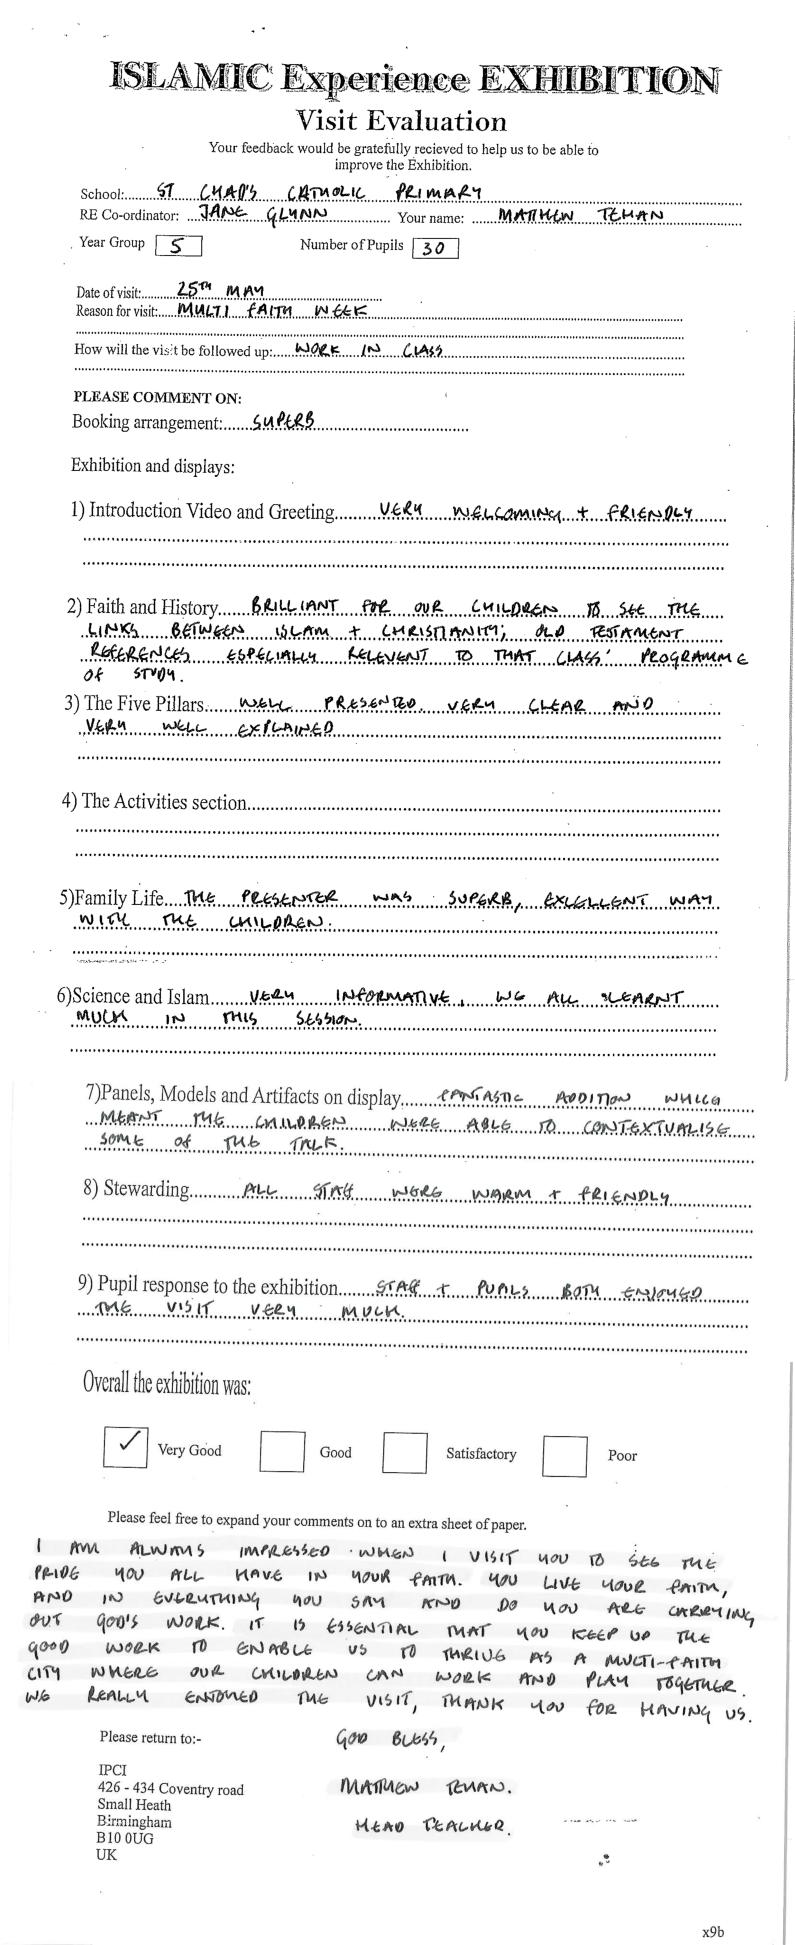 ISLAMIC Experience EXHIBITION
Visit Evaluation
Your feedback would be gratefully recieved to help us to be able to
improve the Exhibition.
School:...... ST CHAD'S CATHOLIC PRIMARY
RE Co-ordinator: ..JANE GLYNN.......... Your name: ......MATTHEW TEHAN
Year Group 5 Number of Pupils 30
Date of visit:.........25TH MAY
Reason for visit:.....MULTI FAITH WEEK
How will the visit be followed up:.....WORK IN CLASS
PLEASE COMMENT ON:
Booking arrangement:......SUPERB
Exhibition and displays:
1) Introduction Video and Greeting........VERY WELCOMING + FRIENDLY
2) Faith and History......BRILLIANT FOR OUR CHILDREN TO SEE THE
LINKS BETWEEN ISLAM + CHRISTIANITY; OLD TESTAMENT
REFERENCES ESPECIALLY RELEVENT TO THAT CLASS' PROGRAMME
OF STUDY.
3) The Five Pillars......WELL PRESENTED. VERY CLEAR AND
VERY WELL EXPLAINED
4) The Activities section
5)Family Life....THE PRESENTER WAS SUPERB, EXCELLENT WAY
WITH THE CHILDREN.
6)Science and Islam......VERY INFORMATIVE, WE ALL LEARNT
MUCH IN THIS SESSION.
7)Panels, Models and Artifacts on display......FANTASTIC ADDITION WHICH
MEANT THE CHILDREN WERE ABLE TO CONTEXTUALISE
SOME OF THE TALK.
8) Stewarding.........ALL STAFF WERE WARM + FRIENDLY
9) Pupil response to the exhibition......STAFF + PUPILS BOTH ENJOYED
THE VISIT VERY MUCH.
Overall the exhibition was:
✓ Very Good Good Satisfactory Poor
Please feel free to expand your comments on to an extra sheet of paper.
I AM ALWAYS IMPRESSED WHEN I VISIT YOU TO SEE THE
PRIDE YOU ALL HAVE IN YOUR FAITH. YOU LIVE YOUR FAITH,
AND IN EVERYTHING YOU SAY AND DO YOU ARE CARRYING
OUT GOD'S WORK. IT IS ESSENTIAL THAT YOU KEEP UP THE
GOOD WORK TO ENABLE US TO THRIVE AS A MULTI-FAITH
CITY WHERE OUR CHILDREN CAN WORK AND PLAY TOGETHER.
WE REALLY ENJOYED THE VISIT, THANK YOU FOR HAVING US.
Please return to:- GOD BLESS,
IPCI
426 - 434 Coventry road MATTHEW TEHAN.
Small Heath
Birmingham HEAD TEACHER.
B10 0UG
UK
x9b